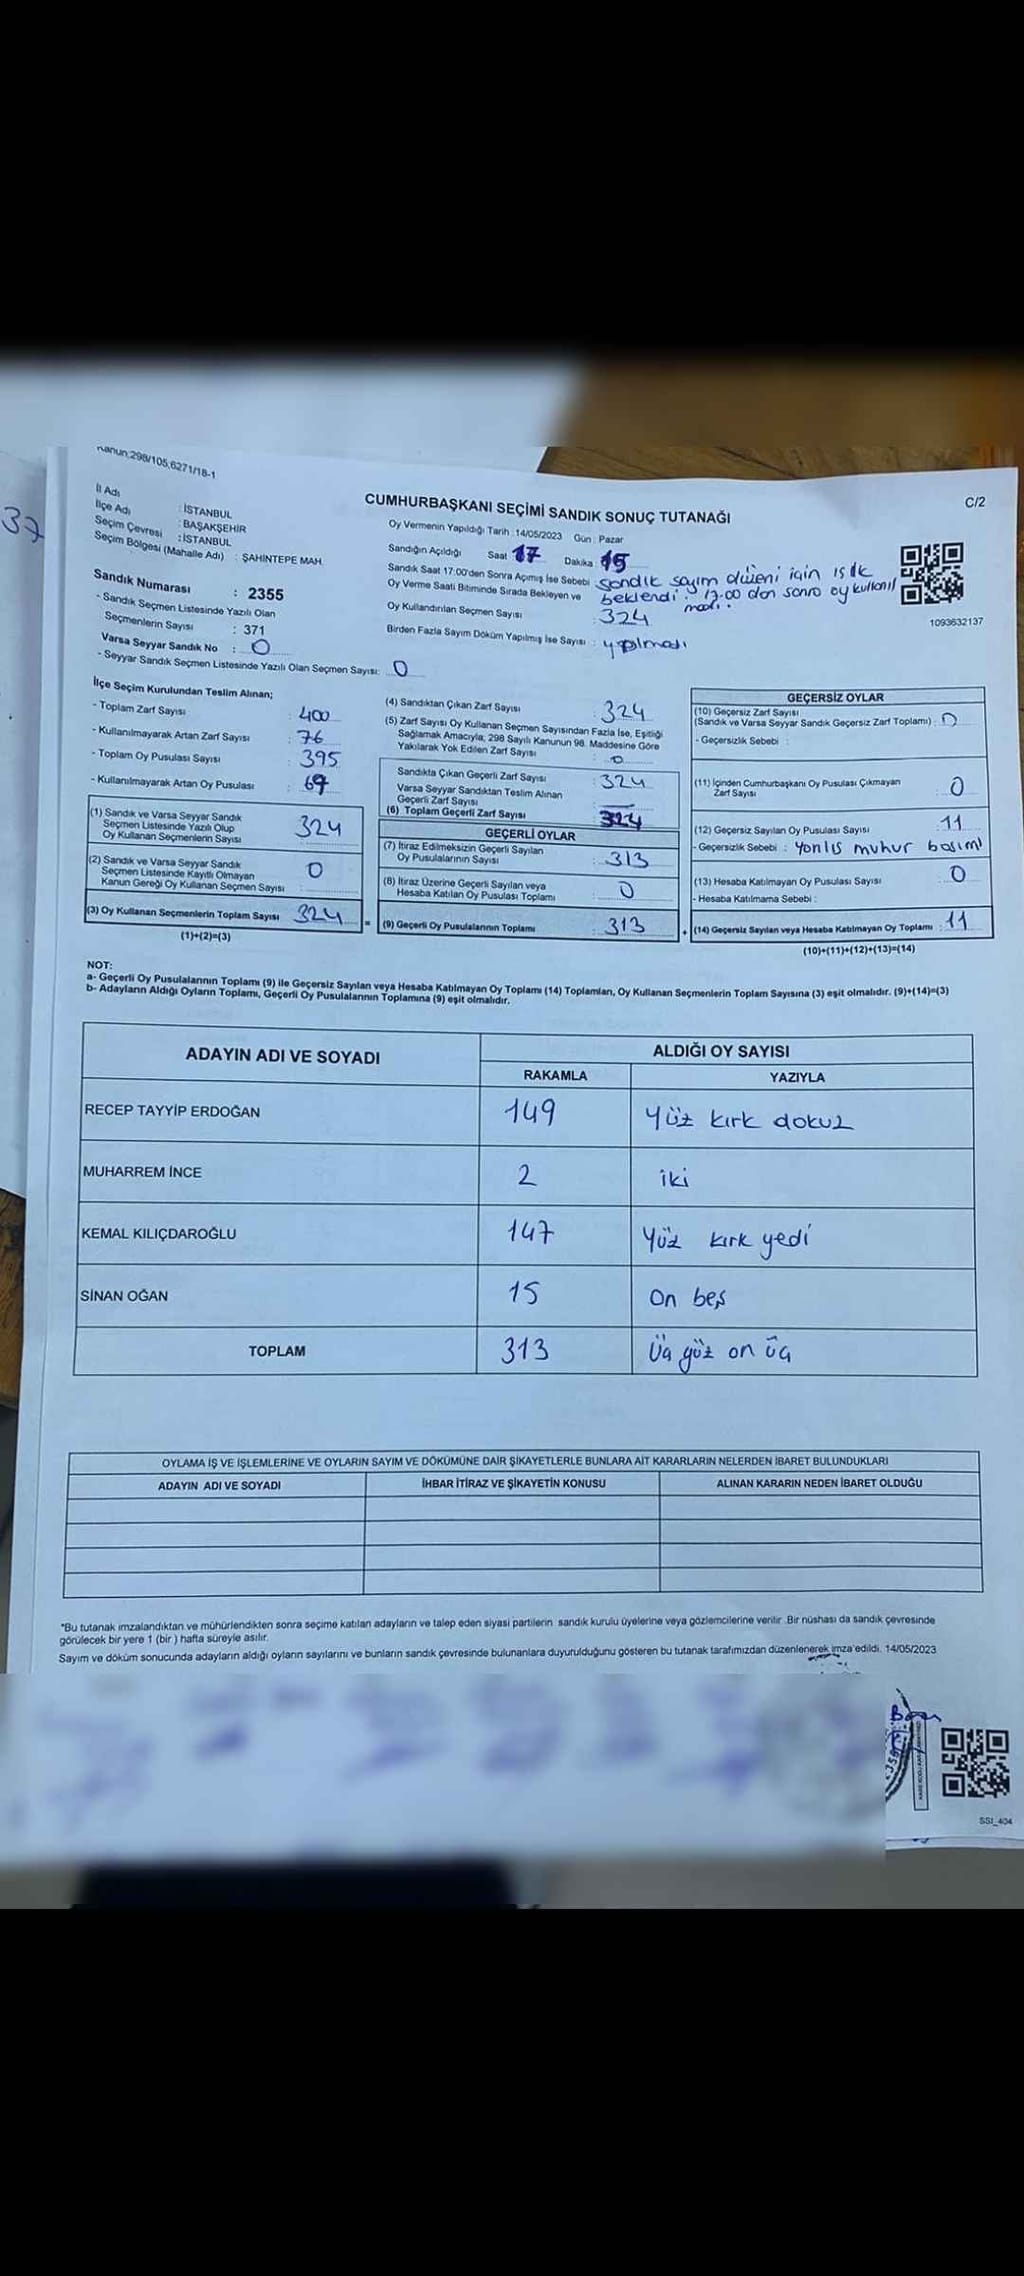 Kanun;298/105,6271/18-1
C/2
37
İl Adı : İSTANBUL
İlçe Adı : BAŞAKŞEHİR
Seçim Çevresi : İSTANBUL
Seçim Bölgesi (Mahalle Adı) : ŞAHİNTEPE MAH.
Sandık Numarası : 2355
- Sandık Seçmen Listesinde Yazılı Olan
Seçmenlerin Sayısı : 371
Varsa Seyyar Sandık No : 0
- Seyyar Sandık Seçmen Listesinde Yazılı Olan Seçmen Sayısı: 0
CUMHURBAŞKANI SEÇİMİ SANDIK SONUÇ TUTANAĞI
Oy Vermenin Yapıldığı Tarih : 14/05/2023 Gün : Pazar
Sandığın Açıldığı Saat 17 Dakika 15
Sandık Saat 17:00'den Sonra Açımış İse Sebebi sandık sayım düzeni için ıslk
Oy Verme Saati Bitiminde Sırada Bekleyen ve beklendi. 17.00 dan sonra oy kullanıl
madı.
Oy Kullandırılan Seçmen Sayısı : 324
Birden Fazla Sayım Döküm Yapılmış İse Sayısı : yapılmadı
1093632137
İlçe Seçim Kurulundan Teslim Alınan;
- Toplam Zarf Sayısı : 400
- Kullanılmayarak Artan Zarf Sayısı : 76
- Toplam Oy Pusulası Sayısı : 395
- Kullanılmayarak Artan Oy Pusulası : 69
(1) Sandık ve Varsa Seyyar Sandık
Seçmen Listesinde Yazılı Olup
Oy Kullanan Seçmenlerin Sayısı 324
(2) Sandık ve Varsa Seyyar Sandık
Seçmen Listesinde Kayıtlı Olmayan
Kanun Gereği Oy Kullanan Seçmen Sayısı 0
(3) Oy Kullanan Seçmenlerin Toplam Sayısı 324 =
(1)+(2)=(3)
(4) Sandıktan Çıkan Zarf Sayısı : 324
(5) Zarf Sayısı Oy Kullanan Seçmen Sayısından Fazla İse, Eşitliği
Sağlamak Amacıyla; 298 Sayılı Kanunun 98. Maddesine Göre
Yakılarak Yok Edilen Zarf Sayısı : 0
Sandıkta Çıkan Geçerli Zarf Sayısı : 324
Varsa Seyyar Sandıktan Teslim Alınan
Geçerli Zarf Sayısı : —
(6) Toplam Geçerli Zarf Sayısı 324
GEÇERLİ OYLAR
(7) İtiraz Edilmeksizin Geçerli Sayılan
Oy Pusulalarının Sayısı : 313
(8) İtiraz Üzerine Geçerli Sayılan veya
Hesaba Katılan Oy Pusulası Toplamı : 0
(9) Geçerli Oy Pusulalarının Toplamı 313 +
GEÇERSİZ OYLAR
(10) Geçersiz Zarf Sayısı
(Sandık ve Varsa Seyyar Sandık Geçersiz Zarf Toplamı) : 0
- Geçersizlik Sebebi :
(11) İçinden Cumhurbaşkanı Oy Pusulası Çıkmayan
Zarf Sayısı 0
(12) Geçersiz Sayılan Oy Pusulası Sayısı : 11
- Geçersizlik Sebebi : Yonlıs muhur basimi
(13) Hesaba Katılmayan Oy Pusulası Sayısı : 0
- Hesaba Katılmama Sebebi :
(14) Geçersiz Sayılan veya Hesaba Katılmayan Oy Toplamı : 11
(10)+(11)+(12)+(13)=(14)
NOT:
a- Geçerli Oy Pusulalarının Toplamı (9) ile Geçersiz Sayılan veya Hesaba Katılmayan Oy Toplamı (14) Toplamları, Oy Kullanan Seçmenlerin Toplam Sayısına (3) eşit olmalıdır. (9)+(14)=(3)
b- Adayların Aldığı Oyların Toplamı, Geçerli Oy Pusulalarının Toplamına (9) eşit olmalıdır.
ADAYIN ADI VE SOYADI ALDIĞI OY SAYISI
RAKAMLA YAZIYLA
RECEP TAYYİP ERDOĞAN 149 Yüz kırk dokuz
MUHARREM İNCE 2 iki
KEMAL KILIÇDAROĞLU 147 Yüz kırk yedi
SİNAN OĞAN 15 On beş
TOPLAM 313 Üç yüz on üç
OYLAMA İŞ VE İŞLEMLERİNE VE OYLARIN SAYIM VE DÖKÜMÜNE DAİR ŞİKAYETLERLE BUNLARA AİT KARARLARIN NELERDEN İBARET BULUNDUKLARI
ADAYIN ADI VE SOYADI İHBAR İTİRAZ VE ŞİKAYETİN KONUSU ALINAN KARARIN NEDEN İBARET OLDUĞU
*Bu tutanak imzalandıktan ve mühürlendikten sonra seçime katılan adayların ve talep eden siyasi partilerin sandık kurulu üyelerine veya gözlemcilerine verilir. Bir nüshası da sandık çevresinde
görülecek bir yere 1 (bir ) hafta süreyle asılır.
Sayım ve döküm sonucunda adayların aldığı oyların sayılarını ve bunların sandık çevresinde bulunanlara duyurulduğunu gösteren bu tutanak tarafımızdan düzenlenerek imza edildi. 14/05/2023
SSI_404